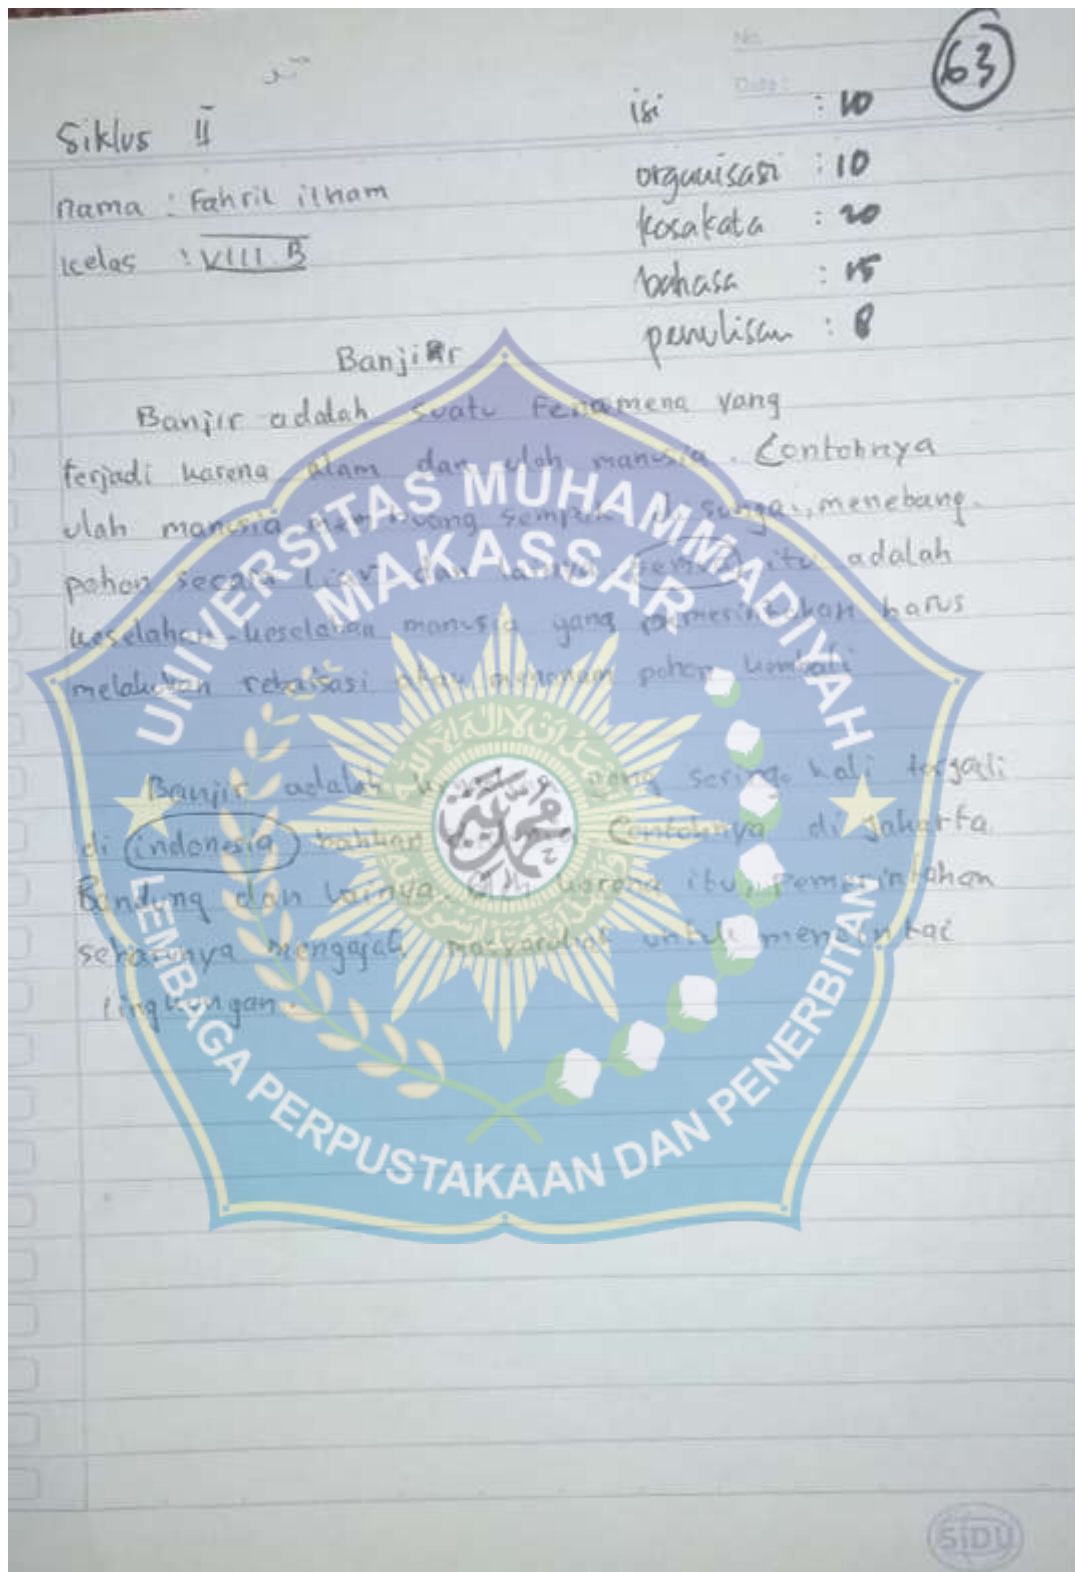 No.
Date:
63
Siklus II
isi : 10
organisasi : 10
nama : Fahril ilham
kosakata : 20
kelas : VIII B
bahasa : 15
penulisan : 8
Banjir
Banjir adalah suatu Fenomena yang
terjadi karena alam dan ulah manusia. Contohnya
ulah manusia membuang di sungai, menebang
pohon secara liar dan lainya. semua itu adalah
keselahan-keselahan manusia yang harus
melakukan atau menanam pohon kembali
Banjir adalah yang sering kali terjadi
di indonesia bahkan Contohnya di Jakarta
Bandung dan lainya. oleh karena itu, pemerintahan
seharunya mengajak masyarakat untuk mencintai
lingkungan.
UNIVERSITAS MUHAMMADIYAH
MAKASSAR
LEMBAGA PERPUSTAKAAN DAN PENERBITAN
SIDU